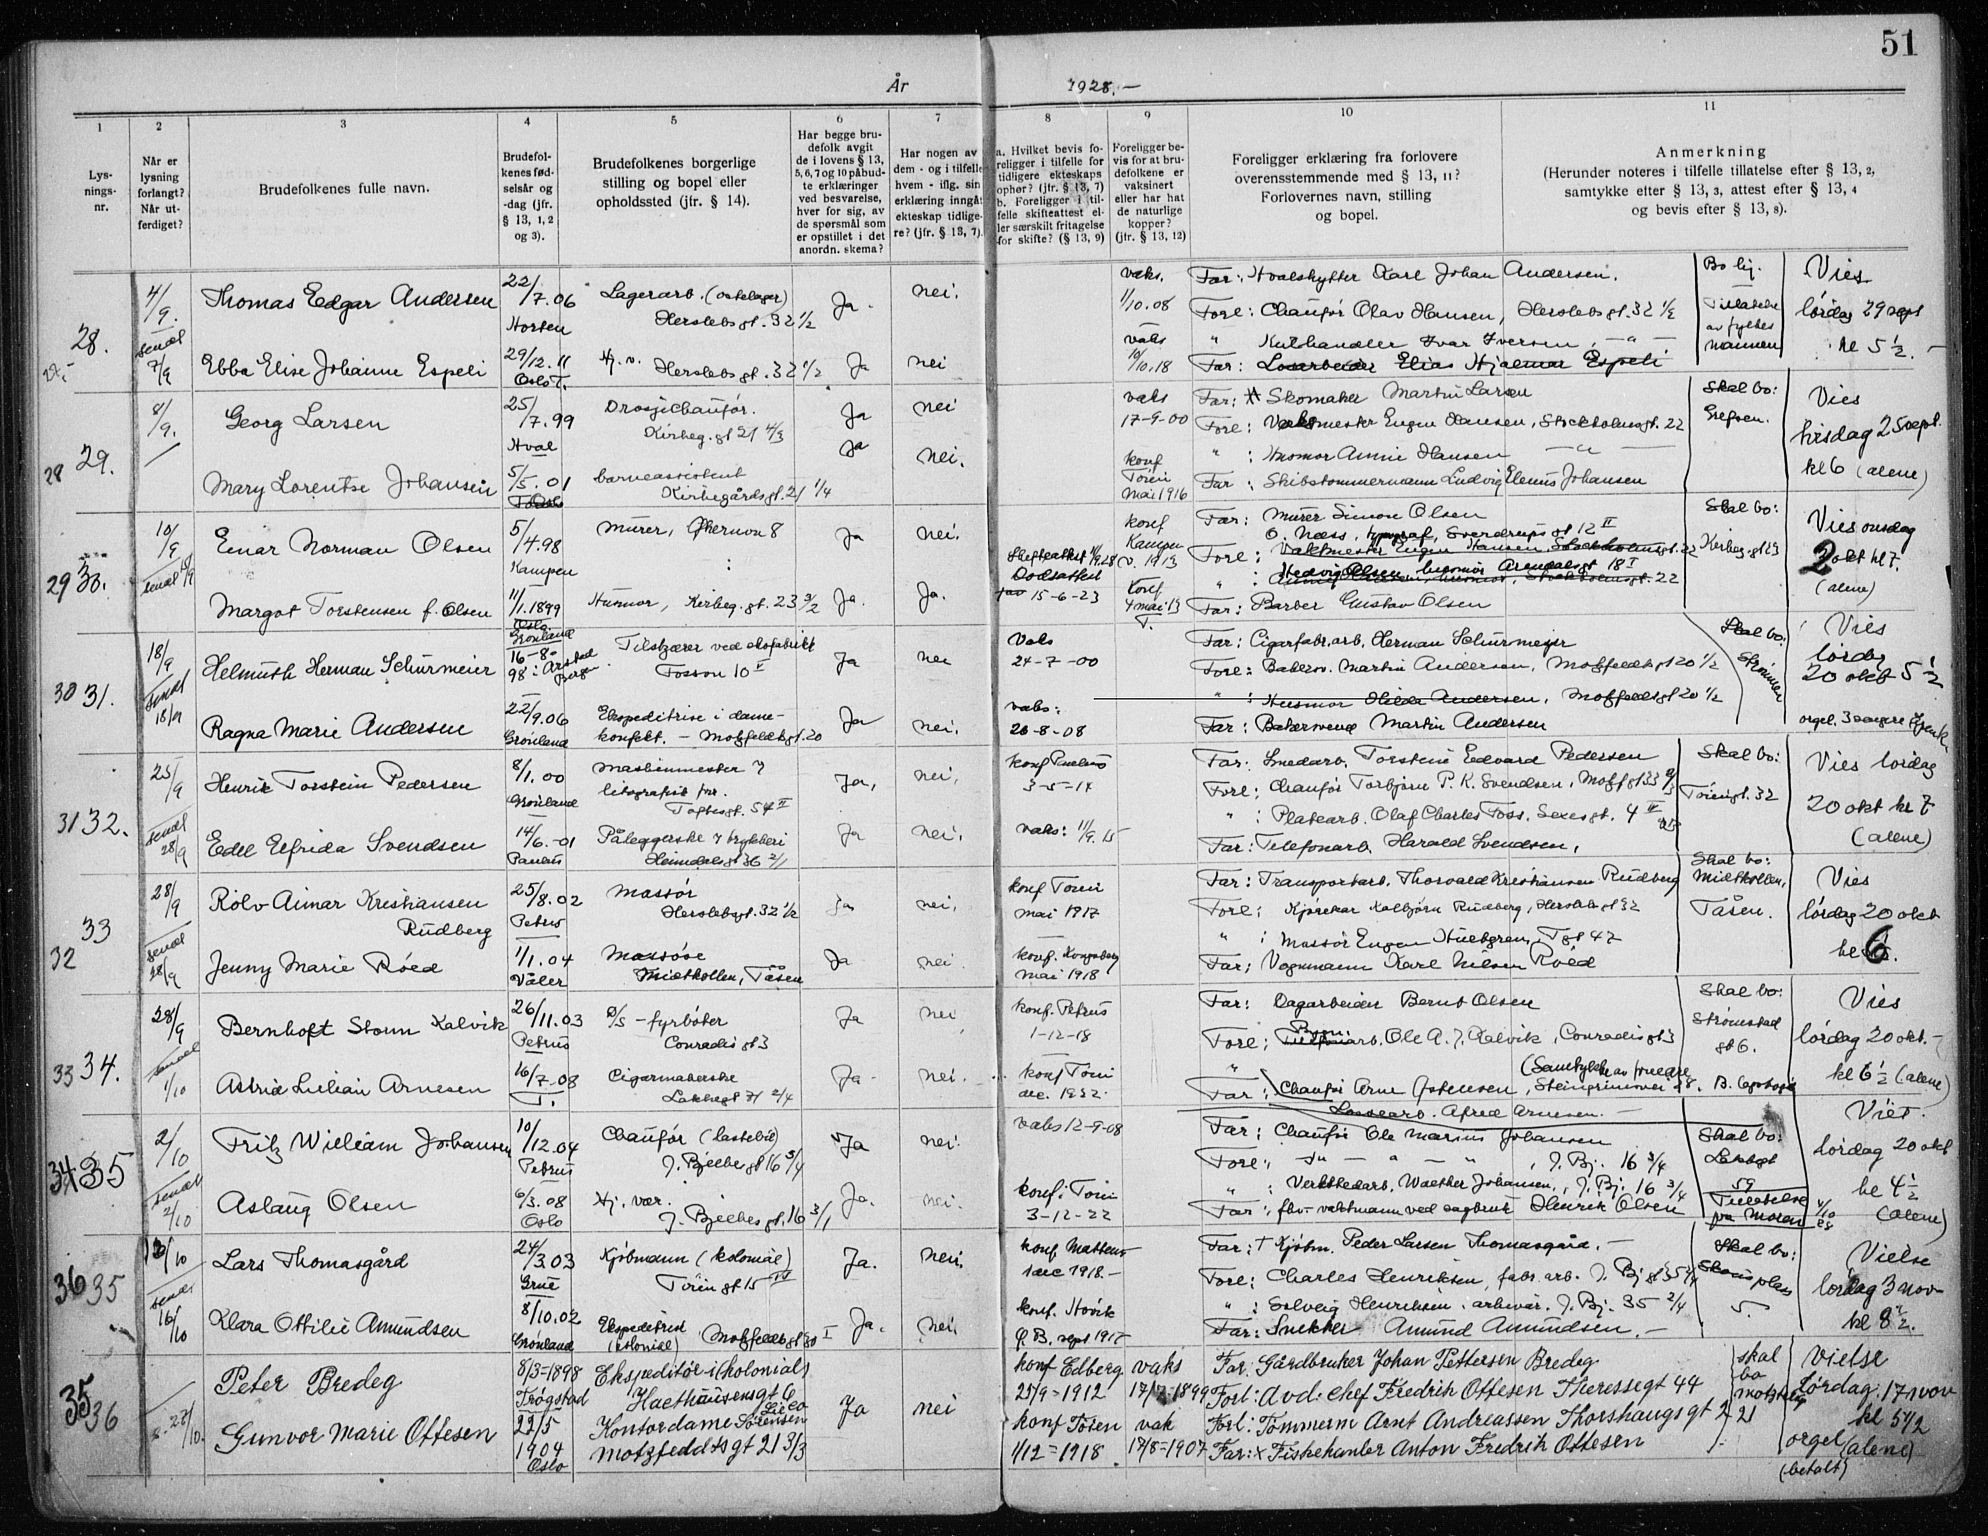 51
År 1928.—
1
2
3
4
5
6
7
8
9
10
11
Lys-
nings-
nr.
Når er
lysning
forlangt?
Når ut-
ferdiget?
Brudefolkenes fulle navn.
Brudefol-
kenes fød-
selsår og
-dag (jfr.
§ 13, 1, 2
og 3).
Brudefolkenes borgerlige
stilling og bopel eller
opholdssted (jfr. § 14).
Har begge bru-
defolk avgit
de i lovens § 13,
5, 6, 7 og 10 påbud-
te erklæringer
ved besvarelse,
hver for sig, av
de spørsmål som
er opstillet i det
anordn. skema?
Har nogen av
dem - og i tilfelle
hvem - iflg. sin
erklæring inngåt
ekteskap tidlige-
re? (jfr. § 13, 7).
a. Hvilket bevis fo-
religger i tilfelle for
tidligere ekteskaps
ophør? (jfr. § 13, 7)
b. Foreligger i til-
felle skifteattest el-
ler særskilt fritagelse
for skifte? (§ 13, 9)
Foreligger be-
vis for at bru-
defolkene er
vaksinert
eller har hat
de naturlige
kopper?
(jfr. § 13, 12)
Foreligger erklæring fra forlovere
overensstemmende med § 13, 11?
Forlovernes navn, stilling
og bopel.
Anmerkning
(Herunder noteres i tilfelle tillatelse efter § 13, 2,
samtykke efter § 13, 3, attest efter § 13, 4
og bevis efter § 13, 8).
28.
4/9.
sendt
7/9
Thomas Edgar Andersen
22/7.06
Horten
Lagerarb.
Herslebsgt. 32 1/2
Ja.
nei.
vaks.
1/10.08
Far: Hvalskytter Karl Johan Andersen.
Forl: Chaufør Olav Hansen, Herslebsgt. 32 1/2
Tillatelse
av fylkes
mannen
Vies
lørdag 29 sept
kl 5 1/2.
Ebba Elise Johanne Espeli
29/12.11
Oslo T.
Hj. v.
Herslebsgt. 32 1/2
Ja
nei
vaks
10/10.18
" Kulhandler Ivar Iversen, — " —
Far: Losarbeider Elias Hjalmar Espeli
28 29.
8/9.
Georg Larsen
25/7.99
Hval
Drosjechaufør.
Kirkeg. gt 21 4/3
Ja
nei
vaks
17-9-00
Far: Skomaker Martin Larsen
Forl: Vaktmester Eugen Hansen, Stockholmsgt. 22
Skal bo:
Grefsen.
Vies
tirsdag 25 sept.
kl 6 (alene)
Mary Lorentse Johansen
5/5.01
barneassistent
Kirkegårdsgt. 21 1/4
Ja
nei.
konf
Tøien
mai 1916
" : Husmor Annie Hansen — " —
Far: Skibstømmermann Ludvig Johansen
29 30.
10/9
Einar Norman Olsen
5/4.98
Kampen
Murer, Økernvn 8
Ja
nei.
konf
Kampen
v. 1913
Far: Murer Simon Olsen
O. Næss, typograf, Sverdrups gt 12 II
Forl: Vaktmester Eugen Hansen Stockholmsgt. 22
Skal bo:
Kirkeg. gt 23
Vies onsdag
2 okt kl 7.
(alene)
Margot Torstensen f. Olsen
11/1.1899
Oslo
Husmor, Kirkeg. gt. 23 3/2
Ja.
Ja.
Skifteattest
Dødsattest
15-6-23
konf
4 mai 13
T.
Hedvig Olsen, husmor Arendalsgt 18 I
Far: Barber Gustav Olsen
30 31.
18/9
sendt
18/9
Helmuth Herman Schürmeier
Grønland
16-8-
98: Årstad
Berg.
Tilskjærer ved skofabrikk
Fossvn 10 II
Ja
nei
Vaks
24-7-00
Far: Cigarfabr.arb. Herman Schürmeier
Forl: Bakersv. Martin Andersen, Motzfeldtsgt 20 1/2
Skal bo:
Strømmen
Vies
lørdag
20 okt 5 1/2
Ragna Marie Andersen
22/9.06
Grønland
Ekspeditrise i dame-
konfekt. — Motzfeldtsgt. 20
Ja
nei.
vaks:
20-8-08
" : Husmor Hilda Andersen, Motzfeldtsgt 20 1/2
Far: Bakersvend Martin Andersen
31 32.
25/9
sendt
28/9
Henrik Torstein Pedersen
8/1.00
Grønland
Maskinmester i
litografisk for.
Toftesgt. 54 II
Ja,
nei.
konf Paulus
3-5-14
Far: Smedarb. Torstein Edvard Pedersen
Forl: Chaufør Torbjørn P. K. Svendsen,
Skal bo:
Tøiengt. 32
Vies lørdag
20 okt kl 7
(alene)
Edel Elfrida Svendsen
14/6.-01
Paulus
Påleggerske i trykkeri
Heimdalsgt 36 2/1
Ja
nei.
vaks: 11/9.15
" : Platearb. Olaf Charles Foss, Sexesgt. 4
Far: Telefonarb. Harald Svendsen,
32 33
28/9
sendt
28/9
Rolv Aimar Kristiansen
Rudberg
25/8.02
Petrus
Massør
Herslebsgt. 32 1/2
Ja
nei.
konf Tøien
mai 1917
Far: Transportarb. Thorvald Kristiansen Rudberg
Forl: Kjørekar Kolbjørn Rudberg, Herslebsgt 32
Skal bo:
Midtkollen,
Tåsen.
Vies
lørdag 20 okt
kl 6
Jenny Marie Røed
1/1.04
Våler
Massøse
Midtkollen, Tåsen
Ja
nei
konf. Kongsberg
mai 1918
" : Massør Eugen Hultgren, T gt 47
Far: Vognmann Karl Nilsen Røed
33 34.
28/9
sendt
1/10
Bernhoft Storm Kalvik
26/11.03
Petrus
D/S - fyrbøter
Conradis gt 3
Ja
nei
konf. Petrus
1-12-18
Far: Dagarbeider Bernt Olsen
Forl: Bygn. arb. Ole A. J. Kalvik, Conradis gt 3
Skal bo:
Strømstad
gt 6.
Vies
lørdag 20 okt. —
kl 6 1/2 (alene)
Astrid Lilian Arnesen
16/7.08
T.
Cigarmakerske
Ja
nei.
konf Tøien
des. 1922.
(Samtykke av foreldre
" Chaufør Arne Østensen, Steingrimsvei 18.
Far: Lossearb. Alfred Arnesen. —
34 35
2/10
sendt
2/10
Fritz William Johansen
10/12.04
Petrus
Chaufør (lastebil)
J. Bjelkes gt 16 3/4
Ja
nei.
vaks 12-9-08
Far: Chaufør Ole Marius Johansen
Forl: " — " — " , J. Bj. 16 3/4
Skal bo:
59
Viet.
lørdag 20 okt
kl 4 1/2
(alene)
Aslaug Olsen
6/3.08
Oslo
Hj. vær.
J. Bjelkes gt. 16 3/1
Ja.
nei.
konf. Tøien
3-12-22
" : Verkstedarb. Walther Johansen, J. Bj. 16 3/4
Far: fhv. vaktmann ved sagbruk Henrik Olsen
Tillatelse
fra Moren
36 35
sendt
16/10
Lars Thomasgård
24/3.03
Grue
Kjøbmann (kolonial)
Tøiengt 15 IV
Ja.
nei.
konf Matteus
1 dec 1918.—
Far: † Kjøbm. Peder Larsen Thomasgård. —
Forl: Charles Henriksen, fabr. arb. J. Bj gt 35
Skal bo:
Skoisplass
5
Vielse
lørdag 3 nov
kl 8 1/2.
Klara Ottilie Amundsen
8/10.02
Grønland
Ekspeditrise
(kolonial) Motzfeldtsgt 20 I
Ja.
nei.
konf. Høvik
Ø. B. sept 1917
" : Solveig Henriksen, arbeider. J. Bj. 35 2/4
Far: Snekker Amund Amundsen. —
35 36
Peter Bredeg
8/3-1898
Trøgstad
Ekspeditør i (kolonial)
Haethuusensgt 6
Ja
nei
konf Edberg
25/9 - 1912
vaks
Far: Gårdbruker Johan Pettersen Bredeg
Forl: Avd: chef Fredrik Ottesen Theressegt 44
skal
bo
motzfeldtsg
21
vielse
Lørdag. 17 nov
kl 5 1/2
orgel (alene)
(betalt)
Gunvor Marie Ottesen
22/5
1904
Oslo
Kontordame
Motzfeldtsgt 21 3/3
konf Tøien
1/12 - 1918
vak
17/8-1907
Forl: Tømmerm Arnt Andreassen Thorshaugsgt 2
Far: x Fiskehanler Anton Fredrik Ottesen